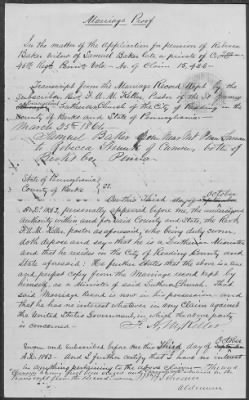 Marriage Proof
In the matter of the Application for pension of Rebecca
Baker widow of Samuel Baker late a private of Co.
46th Regt. Penna. Vols. - No. of Claim 15,422 -
Transcript from the Marriage Record kept by the
subscriber, Rev. F. A. M. Keller, Pastor of the St. James
Lutheran Church of the City of Reading in the
County of Berks and State of Pennsylvania -
March 25th
Samuel Baker
to Rebecca of Cumru, both of
Berks Co. Penna.
State of Pennsylvania
County of Berks } SS.
On this Third day of October
A.D. 1863, personally appeared before me, the undersigned
authority within and for said County and State, the Revd.
F. A. M. Keller, pastor as aforesaid, who being duly sworn,
doth depose and say - that he is a Lutheran Minister
and that he resides in the City of Reading County and
State aforesaid; He further states that the above is a true
and perfect copy from the Marriage record kept by
himself, as a Minister of said Lutheran Church. That
said Marriage Record is now in his possession - and
that he has no interest whatever in any Claim against
the United States Government, in which the above party
is concerned -
F. A. M. Keller
Sworn and subscribed before me this Third day of October
A.D. 1863 - And I further certify that I have no interest
in anything pertaining to the above claim -
Alderman